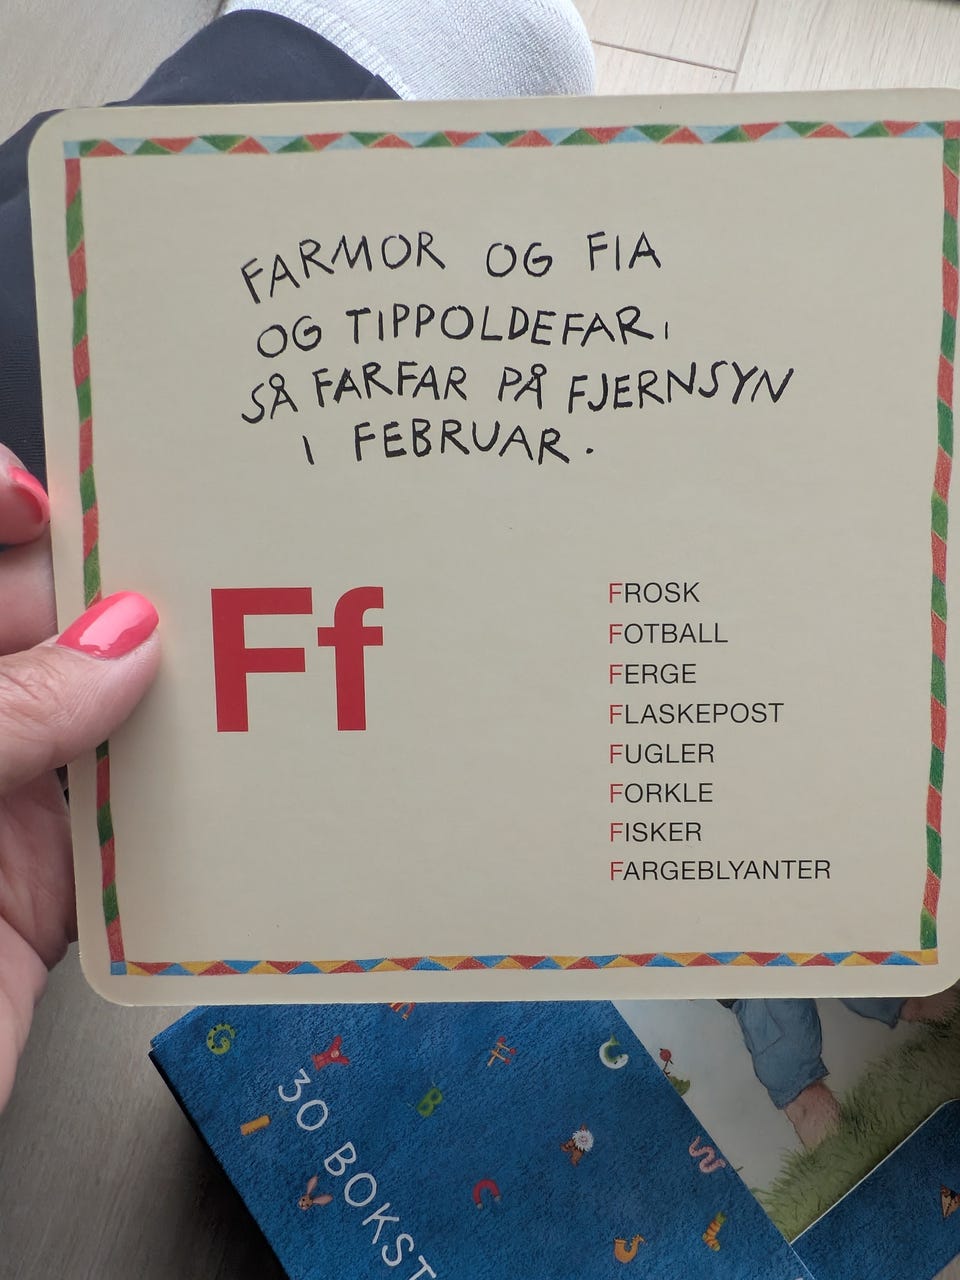 FARMOR OG FIA
OG TIPPOLDEFAR,
SÅ FARFAR PÅ FJERNSYN
I FEBRUAR.
Ff
FROSK
FOTBALL
FERGE
FLASKEPOST
FUGLER
FORKLE
FISKER
FARGEBLYANTER
30 BOKST